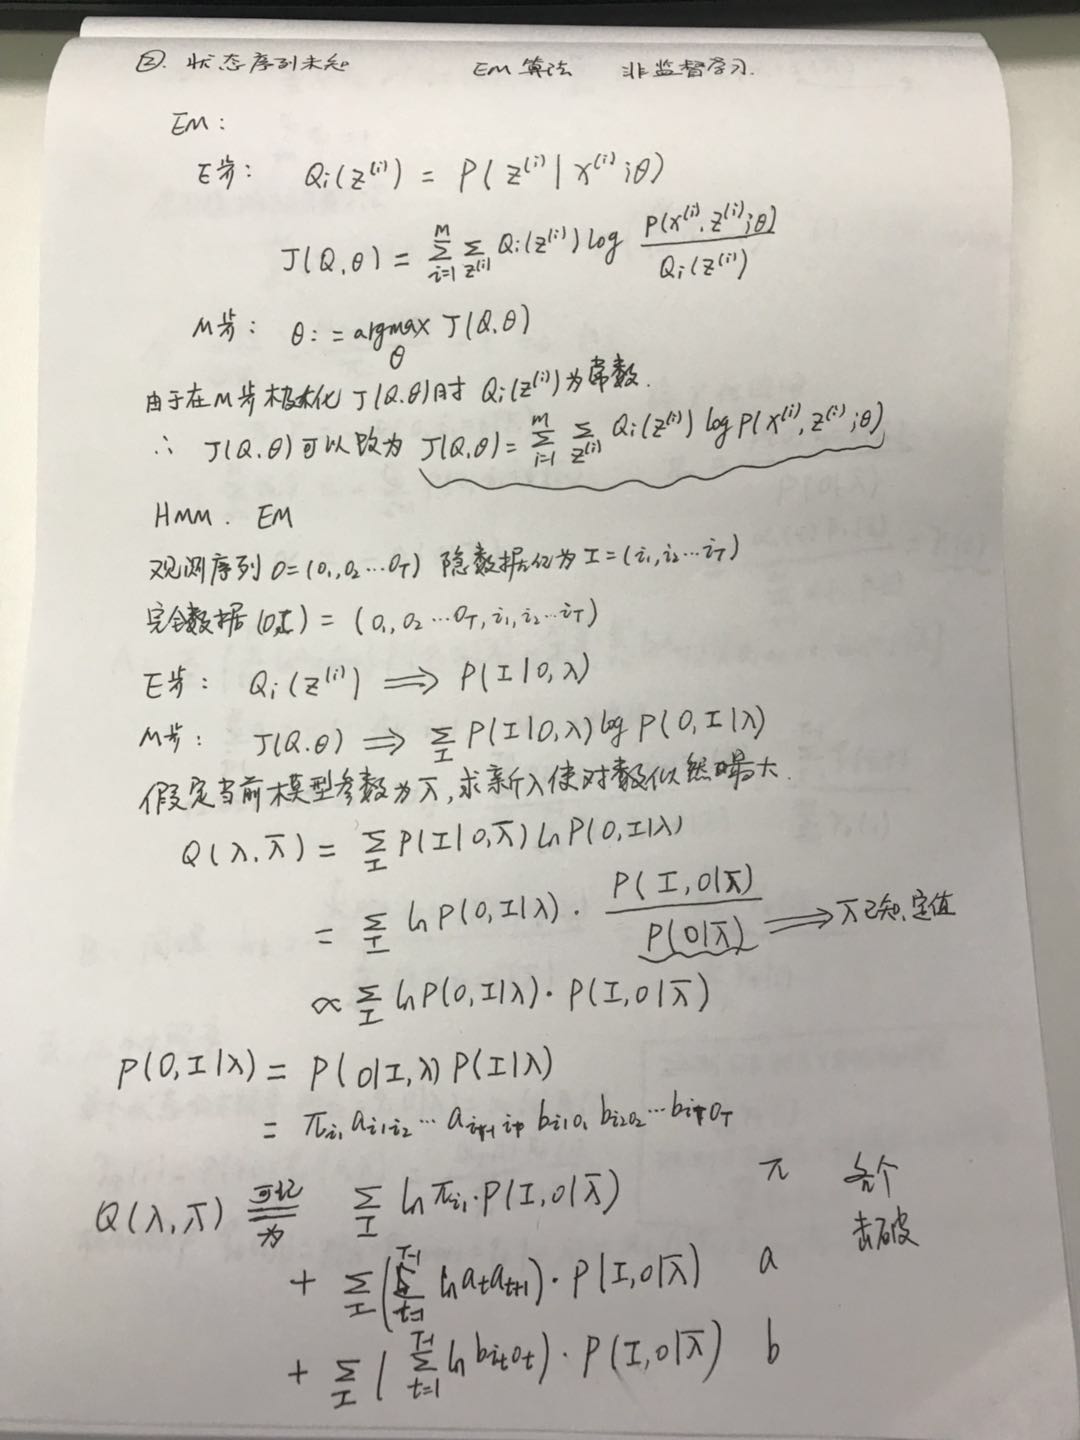 ②. 状态序列未知 EM算法 非监督学习.
EM:
E步: Qi(z⁽ⁱ⁾) = P(z⁽ⁱ⁾|x⁽ⁱ⁾;θ)
J(Q,θ) = Σ_{i=1}^{M} Σ_{z⁽ⁱ⁾} Qi(z⁽ⁱ⁾) log P(x⁽ⁱ⁾,z⁽ⁱ⁾;θ) / Qi(z⁽ⁱ⁾)
M步: θ: = argmax_θ J(Q,θ)
由于在M步极大化 J(Q,θ)时 Qi(z⁽ⁱ⁾)为常数.
∴ J(Q,θ)可以改为 J(Q,θ) = Σ_{i=1}^{m} Σ_{z⁽ⁱ⁾} Qi(z⁽ⁱ⁾) log P(x⁽ⁱ⁾,z⁽ⁱ⁾;θ)
HMM. EM
观测序列 O=(o₁,o₂…o_T) 隐数据记为 I=(i₁,i₂…i_T)
完全数据 (O,I) = (o₁,o₂…o_T,i₁,i₂…i_T)
E步: Qi(z⁽ⁱ⁾) ⟹ P(I|O,λ)
M步: J(Q,θ) ⟹ Σ_I P(I|O,λ) log P(O,I|λ)
假定当前模型参数为λ̄,求新λ使对数似然最大.
Q(λ,λ̄) = Σ_I P(I|O,λ̄) ln P(O,I|λ)
= Σ_I ln P(O,I|λ) · P(I,O|λ̄) / P(O|λ̄) ⟹ λ̄已知,定值
∝ Σ_I ln P(O,I|λ) · P(I,O|λ̄)
P(O,I|λ) = P(O|I,λ) P(I|λ)
= π_{i₁} a_{i₁i₂} … a_{i_{T-1}i_T} b_{i₁o₁} b_{i₂o₂} … b_{i_To_T}
Q(λ,λ̄) 可记为 Σ_I ln π_{i₁} · P(I,O|λ̄) π 各个
击破
+ Σ_I (Σ_{t=1}^{T-1} ln a_t a_{t+1}) · P(I,O|λ̄) a
+ Σ_I (Σ_{t=1}^{T-1} ln b_{i_to_t}) · P(I,O|λ̄) b